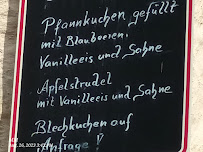 Pfannkuchen gefüllt
mit Blaubeeren,
Vanilleeis und Sahne
Apfelstrudel
mit Vanilleeis und Sahne
Blechkuchen auf
Anfrage!
26, 2023 2:4